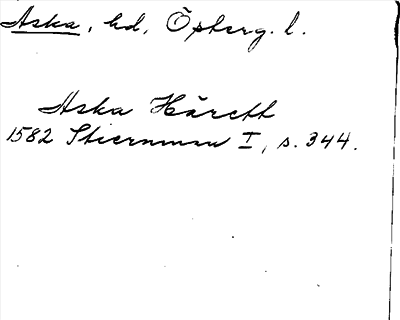 Aska, hd, Österg. l.
Aska Härett
1582 Stiernman I, s. 344.